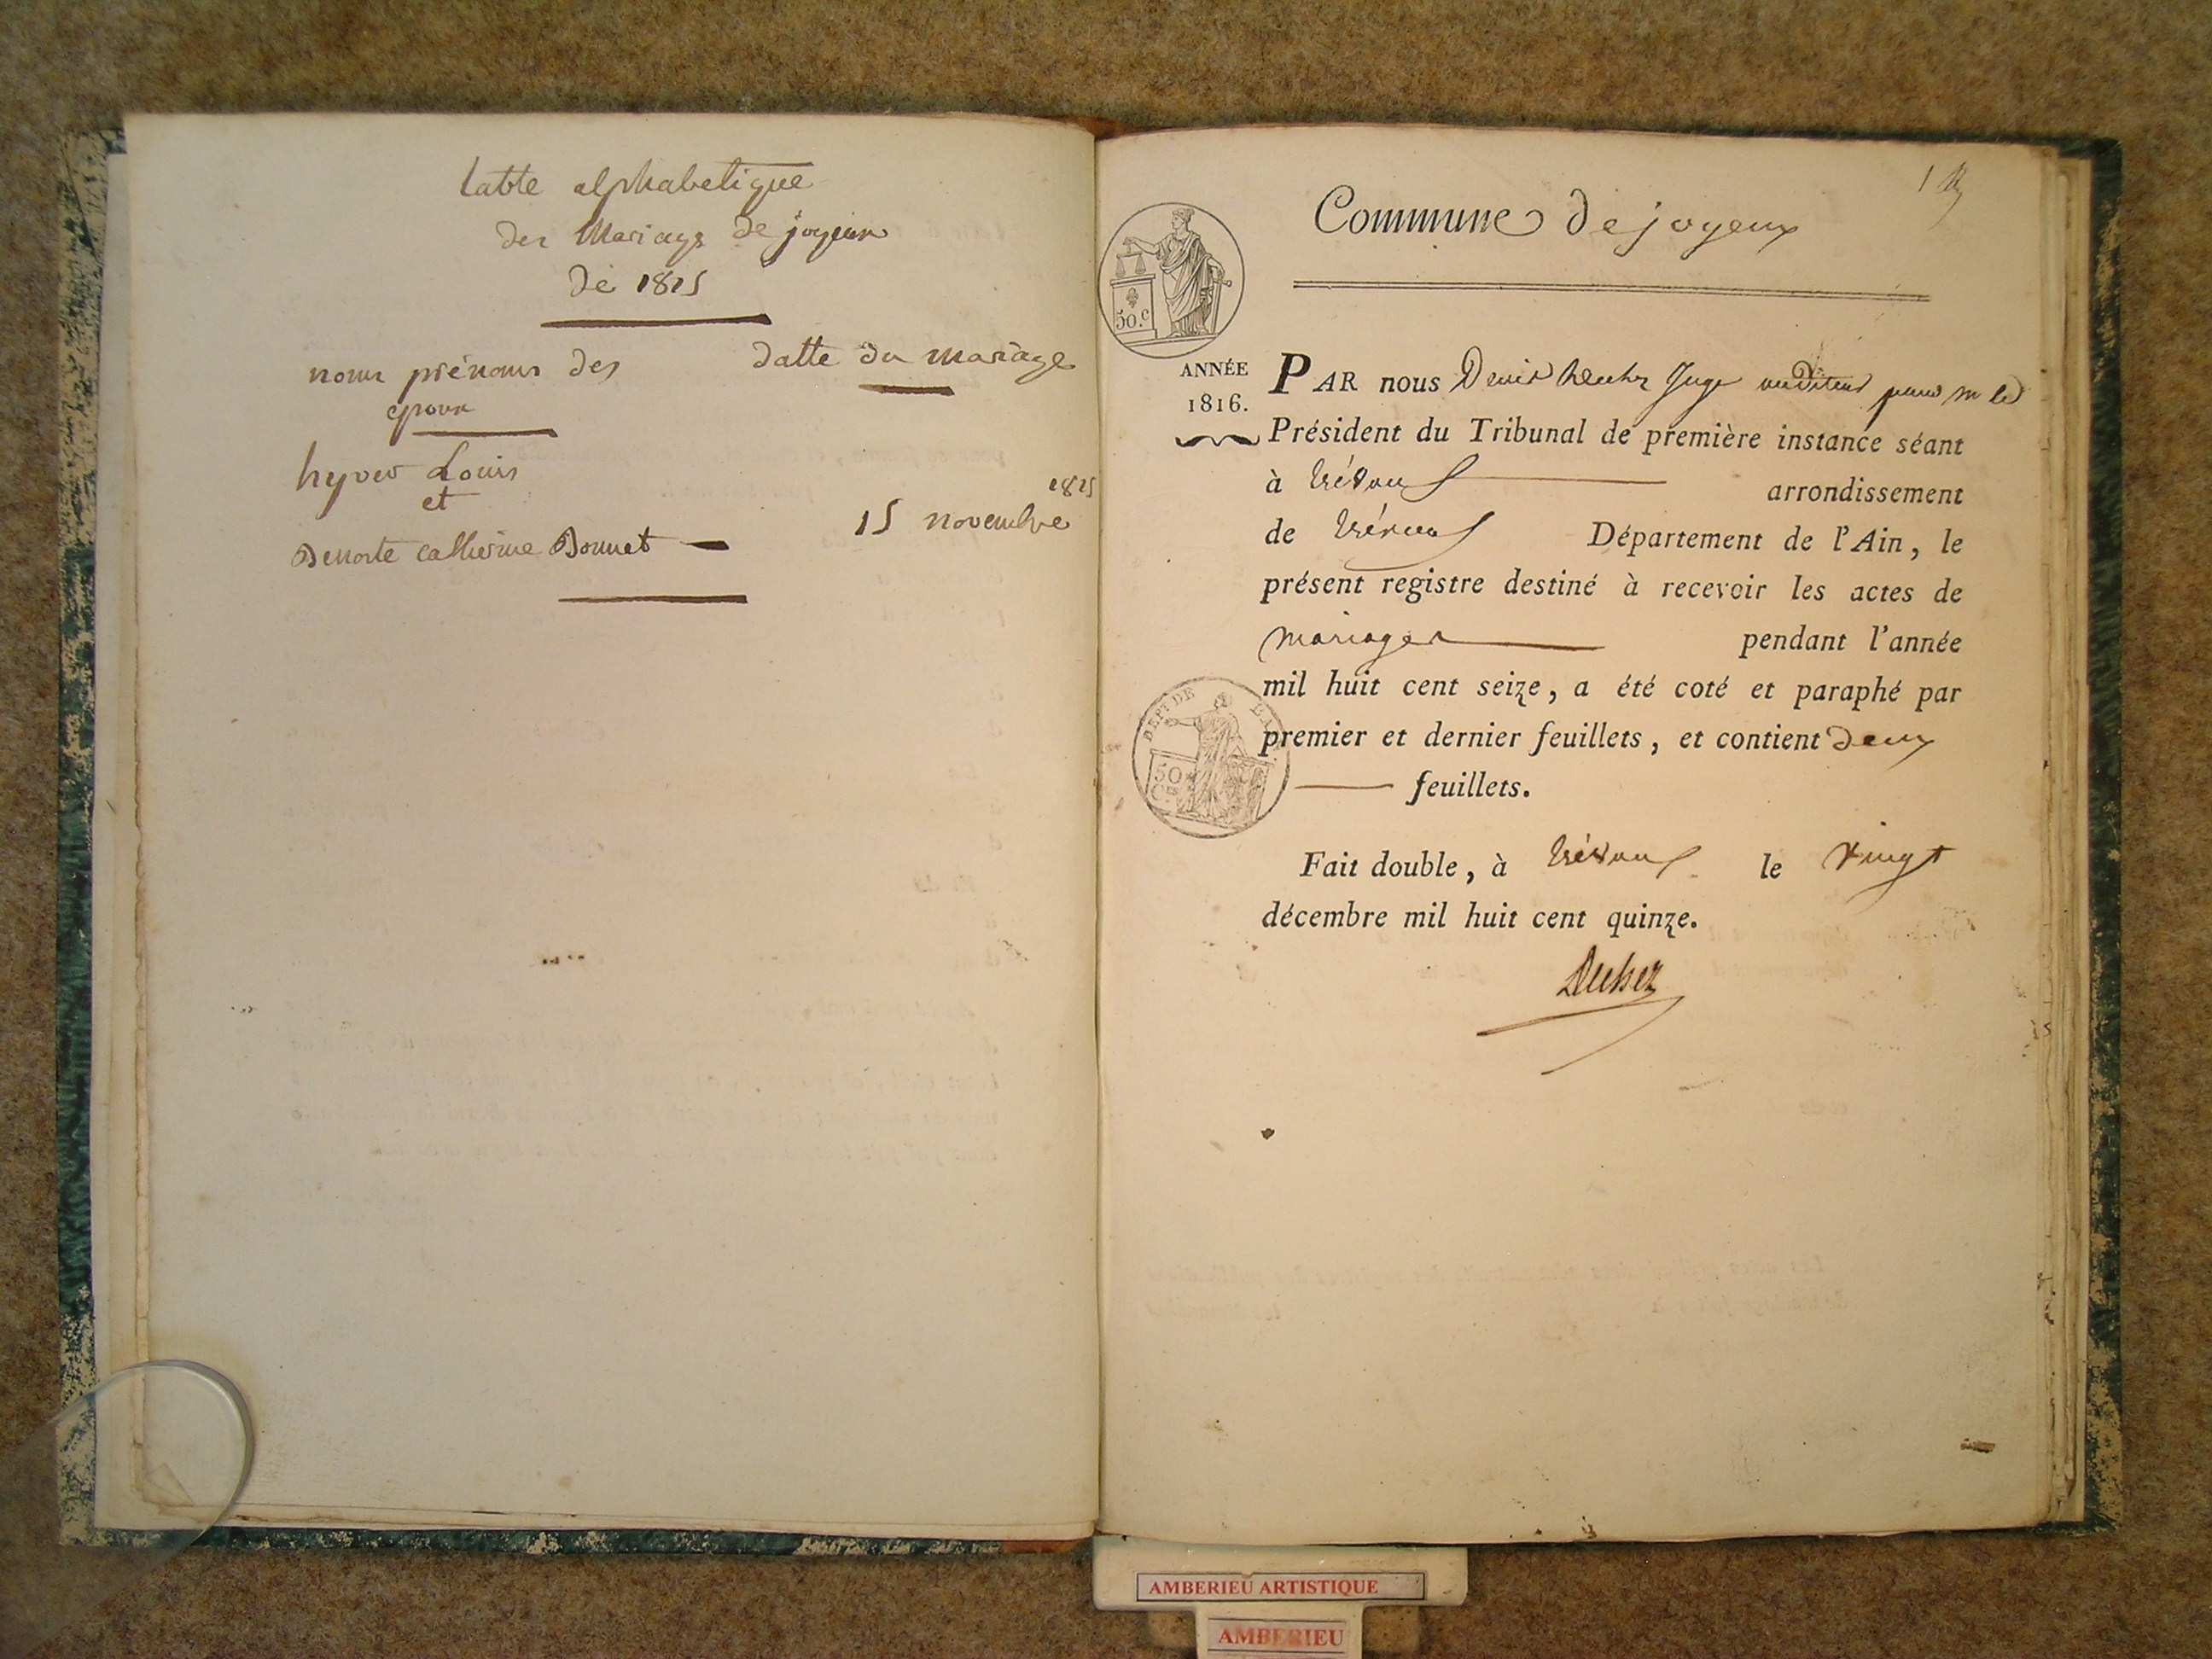 table alphabetique
des Mariage de joyeux
de 1815
noms prénoms des
epoux
datte du mariage
hyver Louis
et
Denorte catherine Bonnet
1815
15 novembre
1
Commune de joyeux
50.c
ANNÉE
1816.
PAR nous Denis Juge auditeur pour m le
Président du Tribunal de première instance séant
à trévoux arrondissement
de trévoux Département de l'Ain, le
présent registre destiné à recevoir les actes de
mariages pendant l'année
mil huit cent seize, a été coté et paraphé par
premier et dernier feuillets, et contient deux
feuillets.
DEPT DE L'AIN
50
Cmes
Fait double, à trévoux le vingt
décembre mil huit cent quinze.
AMBERIEU ARTISTIQUE
AMBERIEU